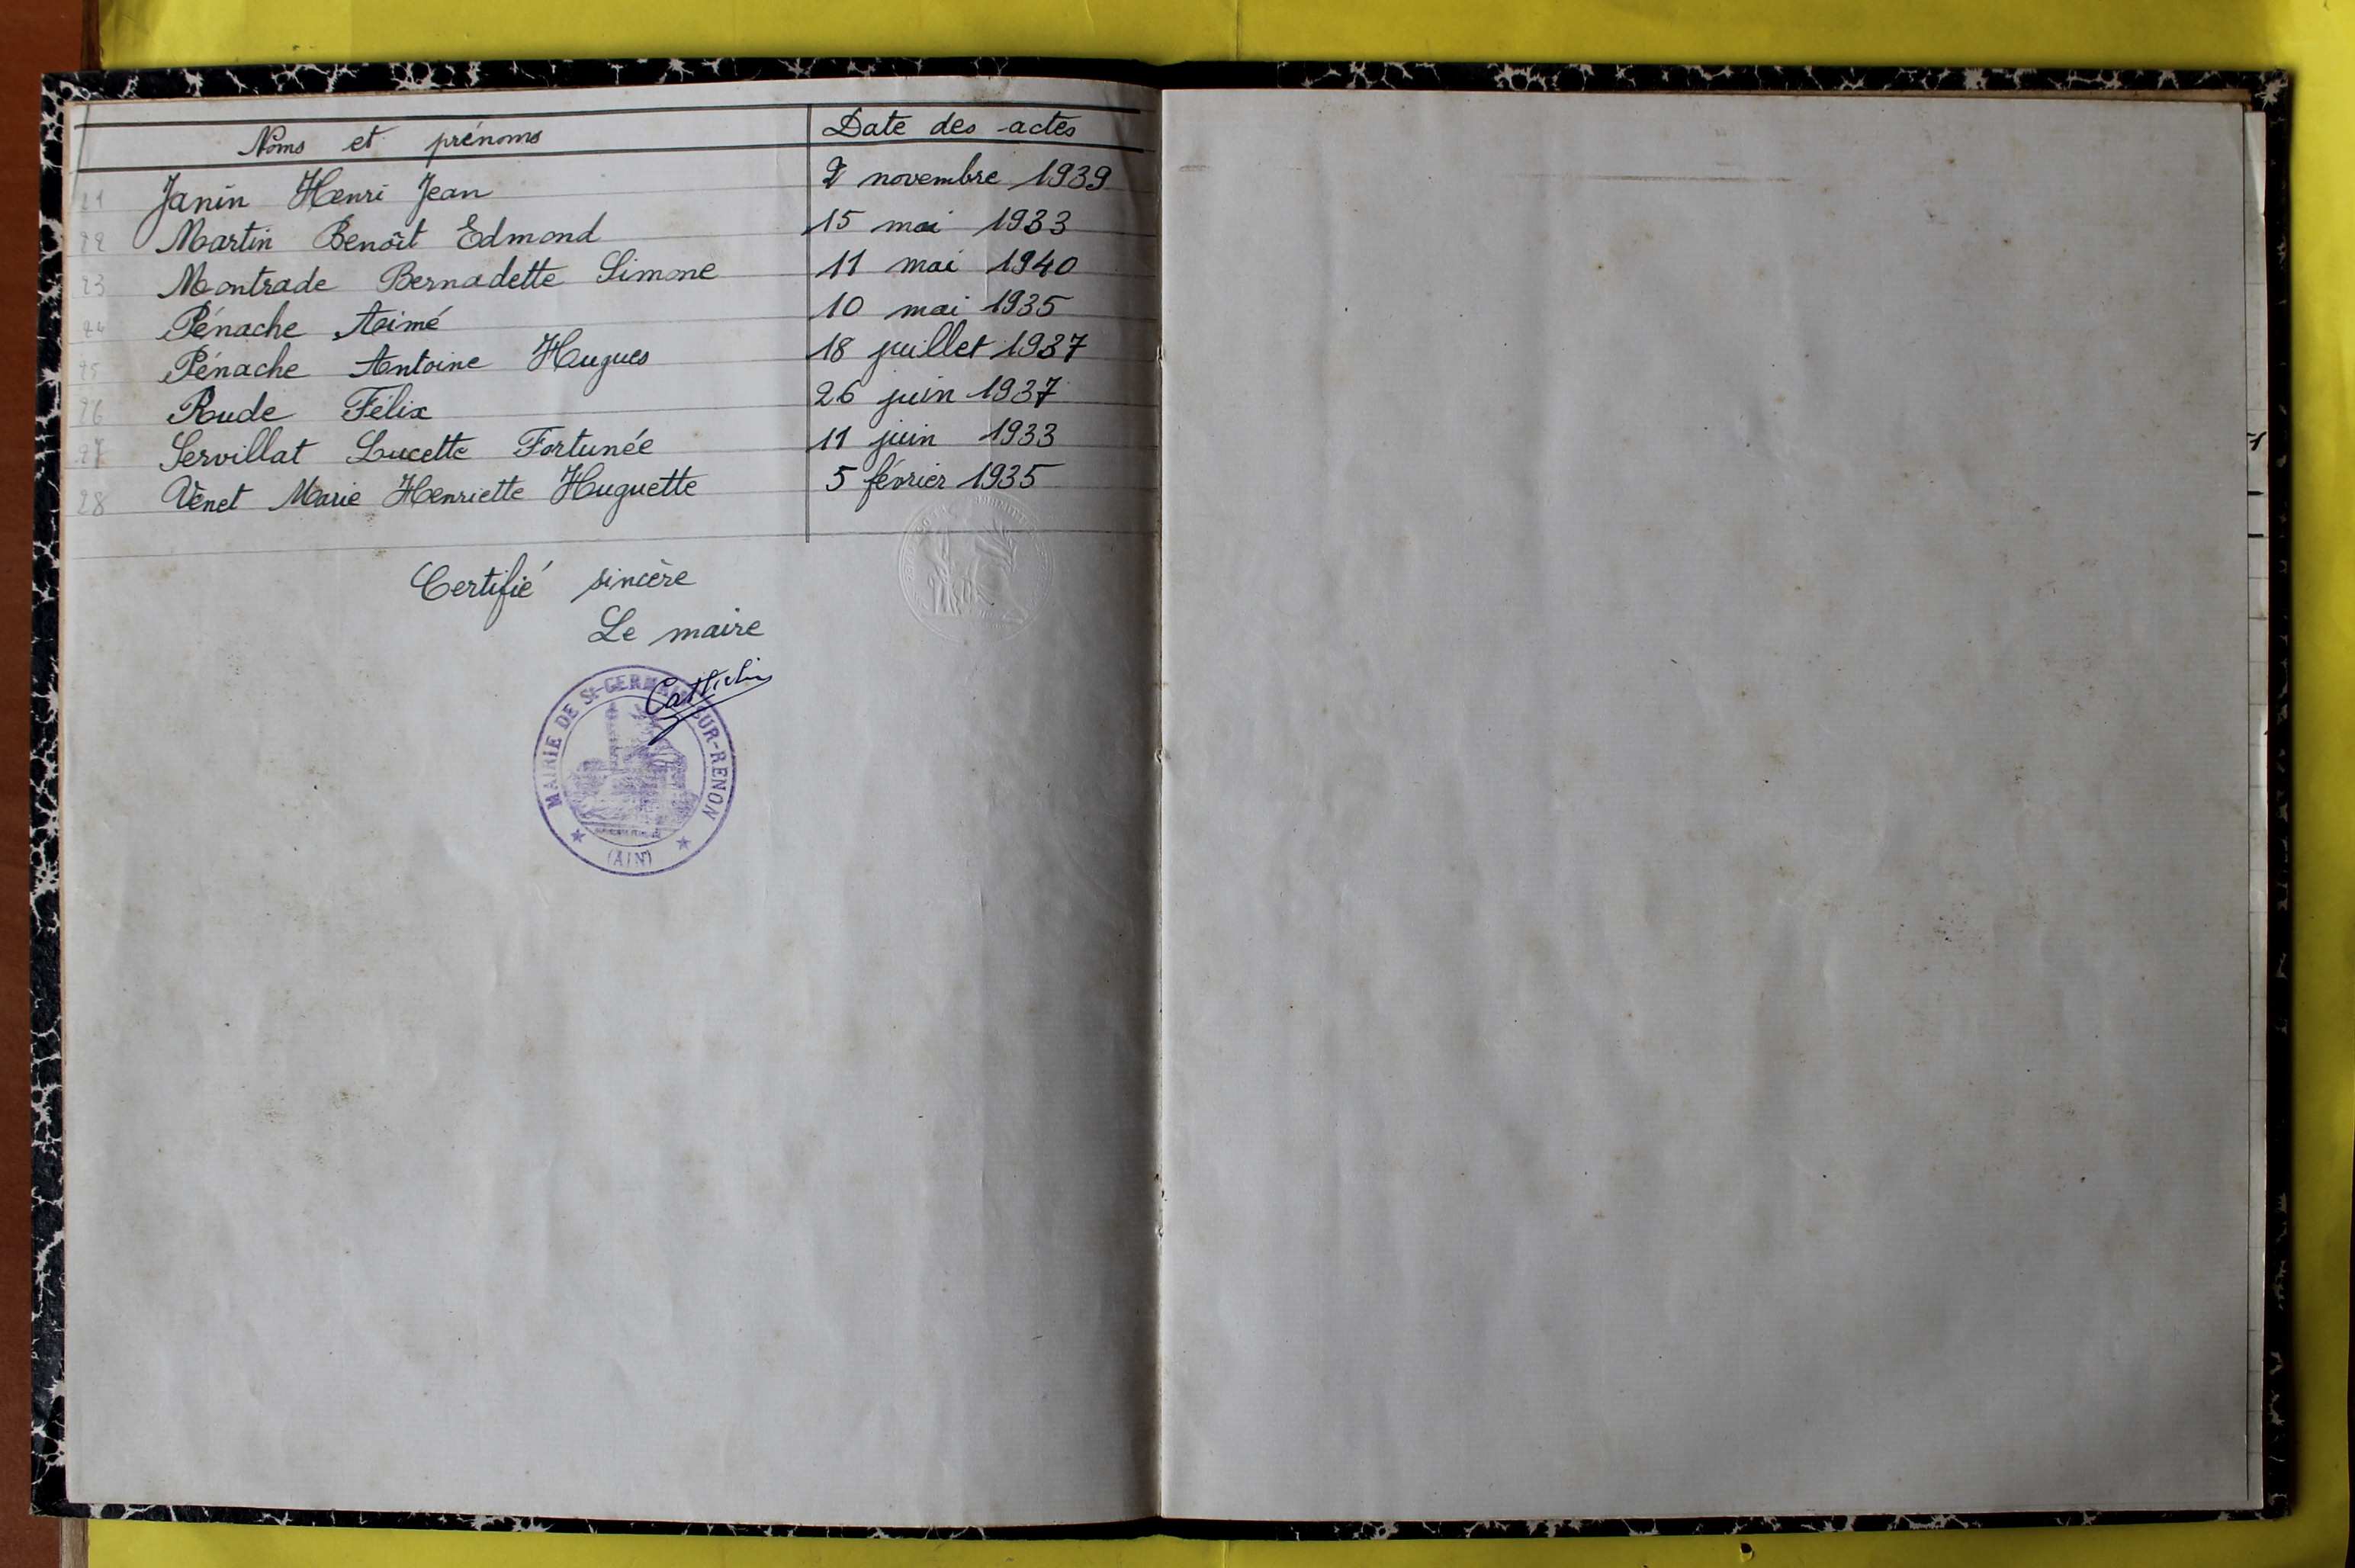 Noms et prénoms Date des actes
21 Janin Henri Jean 2 novembre 1939
22 Martin Benoît Edmond 15 mai 1933
23 Montrade Bernadette Simone 11 mai 1940
24 Pénache Aimé 10 mai 1935
25 Pénache Antoine Hugues 18 juillet 1937
26 Rude Félix 26 juin 1937
27 Servillat Lucette Fortunée 11 juin 1933
28 Vénet Marie Henriette Huguette 5 février 1935
Certifié sincère
Le maire
MAIRIE DE St-GERMAIN-SUR-RENON
(AIN)